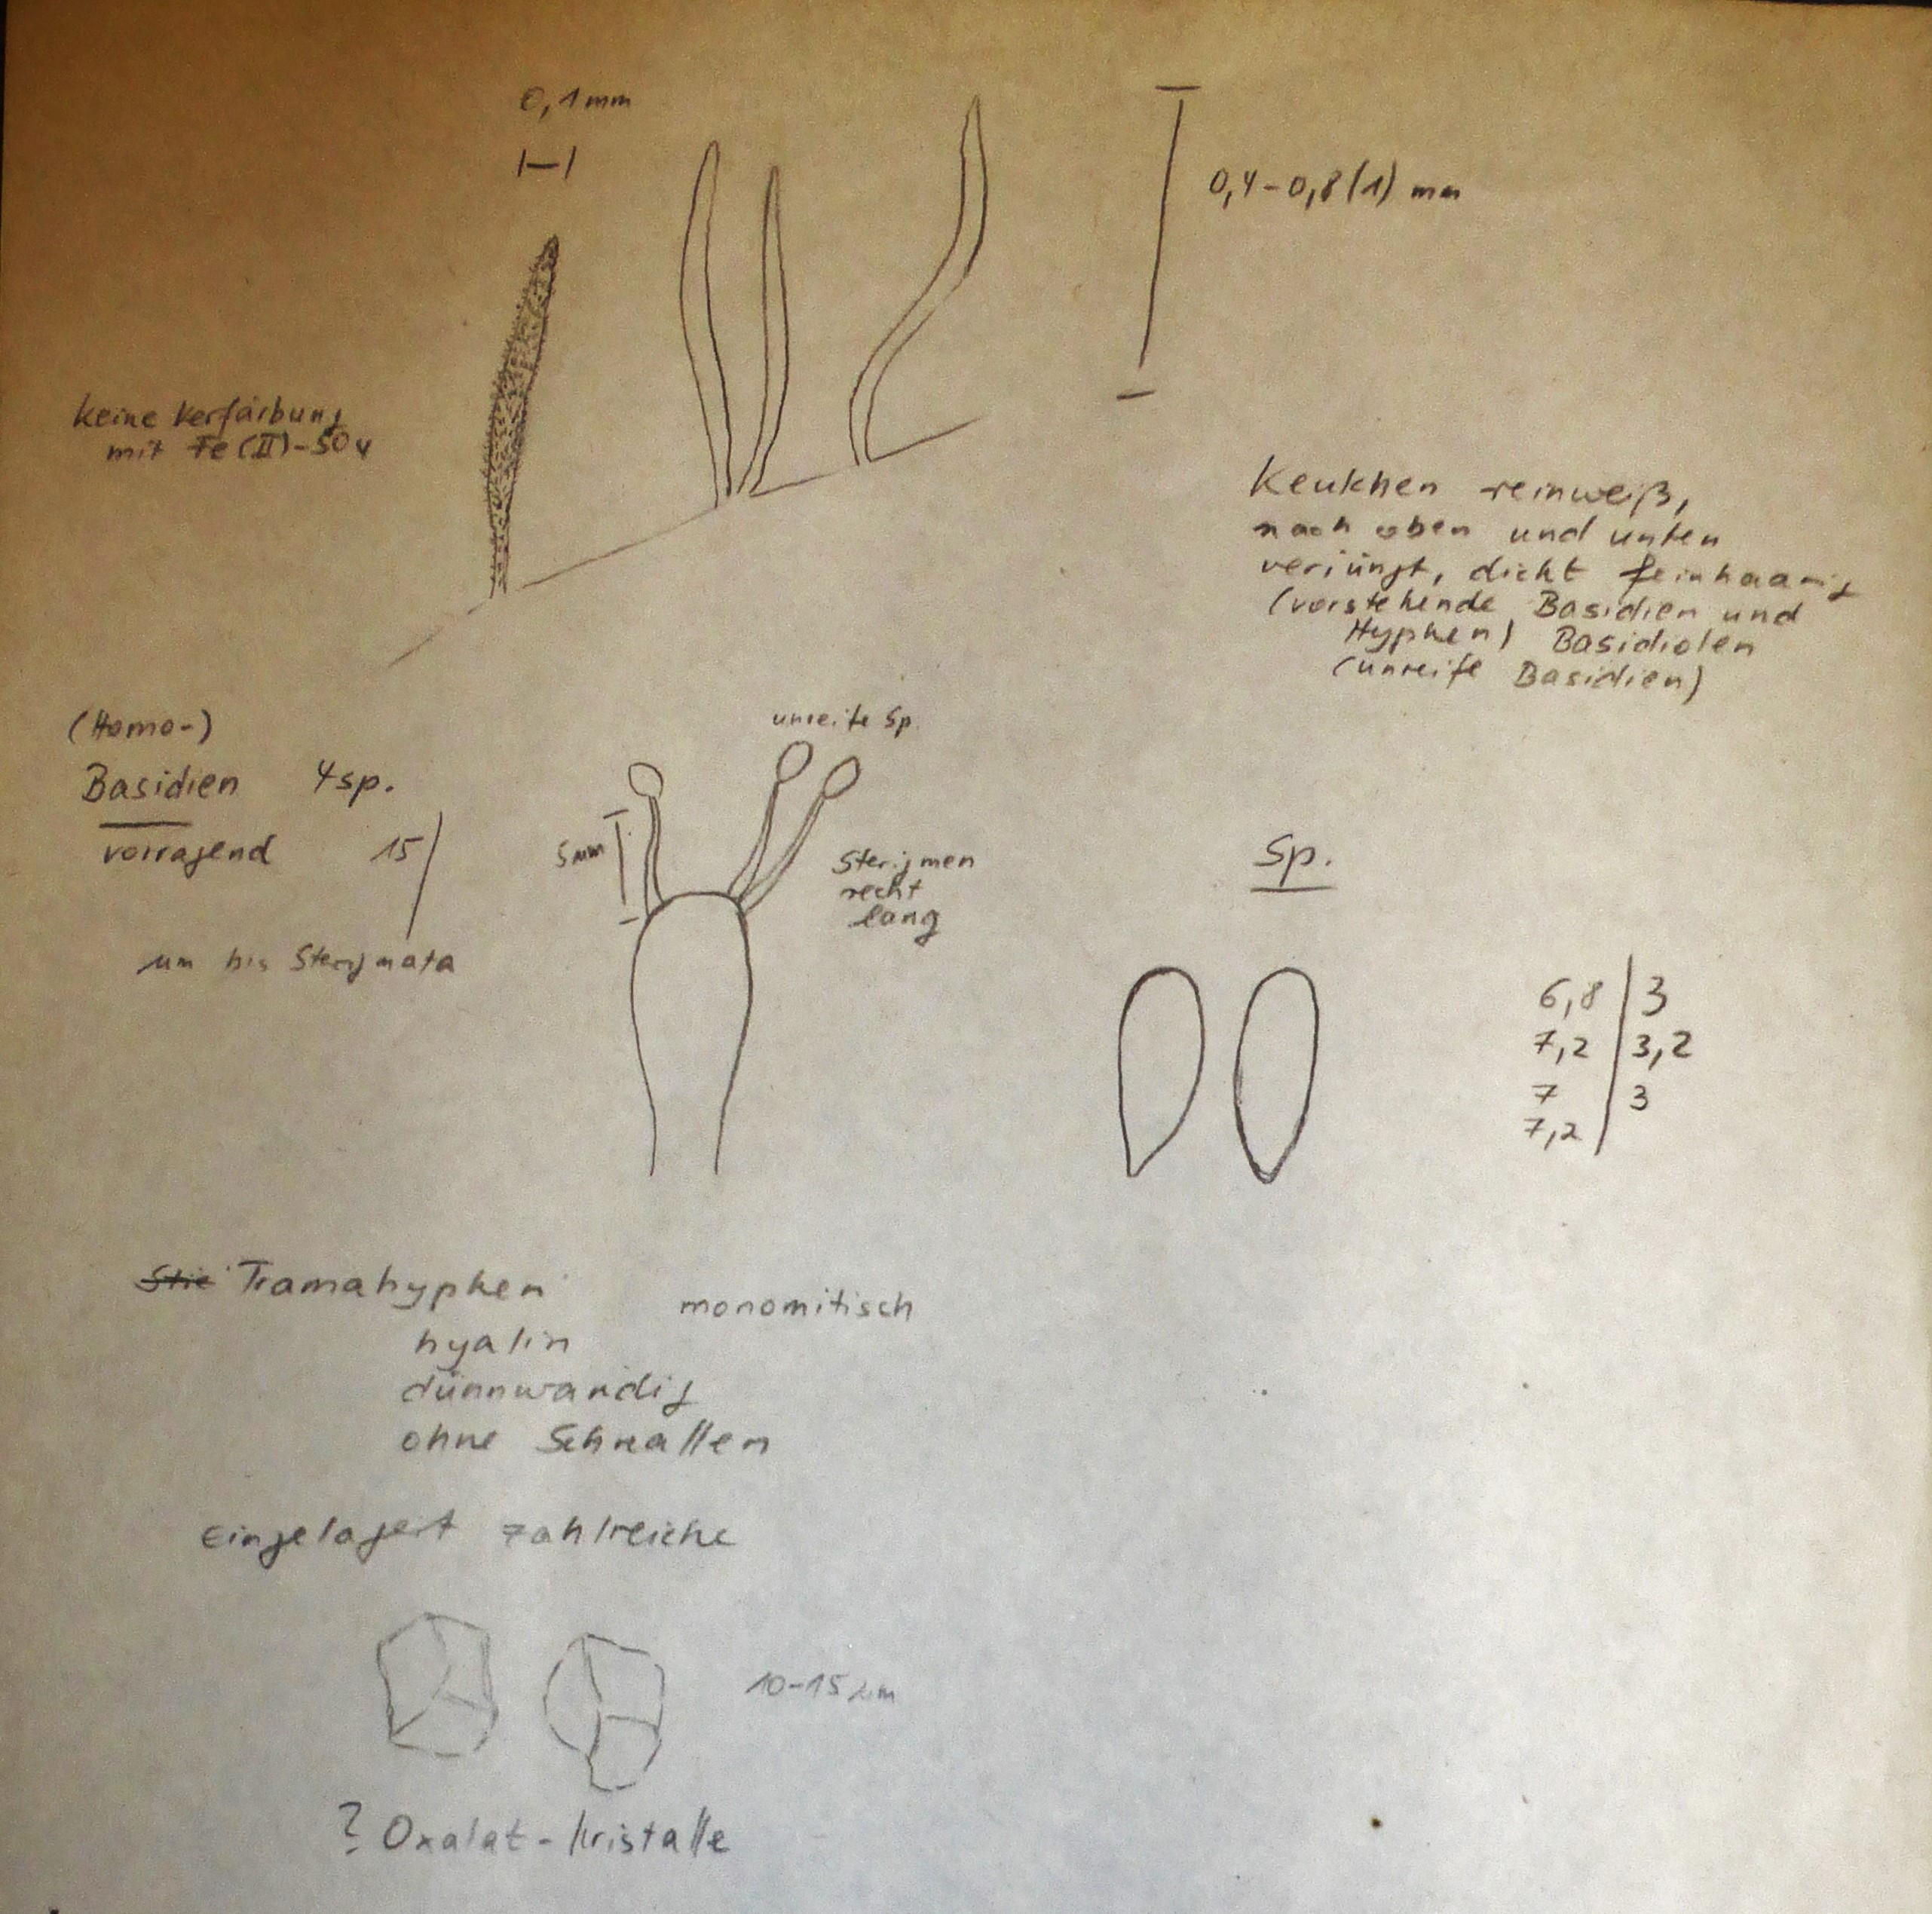 0,1mm
0,4-0,8(1) mm
keine Verfärbung
mit Fe(II)-SO4
Keulchen reinweiß,
nach oben und unten
verjüngt, dicht feinhaarig
(vorstehende Basidien und
Hyphen) Basidiolen
(unreife Basidien)
(Homo-)
Basidien 4sp.
vorragend 15/
µm bis Sterigmata
unreife Sp.
5µm
Sterigmen
recht
lang
Sp.
6,8 | 3
7,2 | 3,2
7 | 3
7,2
Stie Tramahyphen
monomitisch
hyalin
dünnwandig
ohne Schnallen
Eingelagert zahlreiche
10-15 µm
? Oxalat-Kristalle